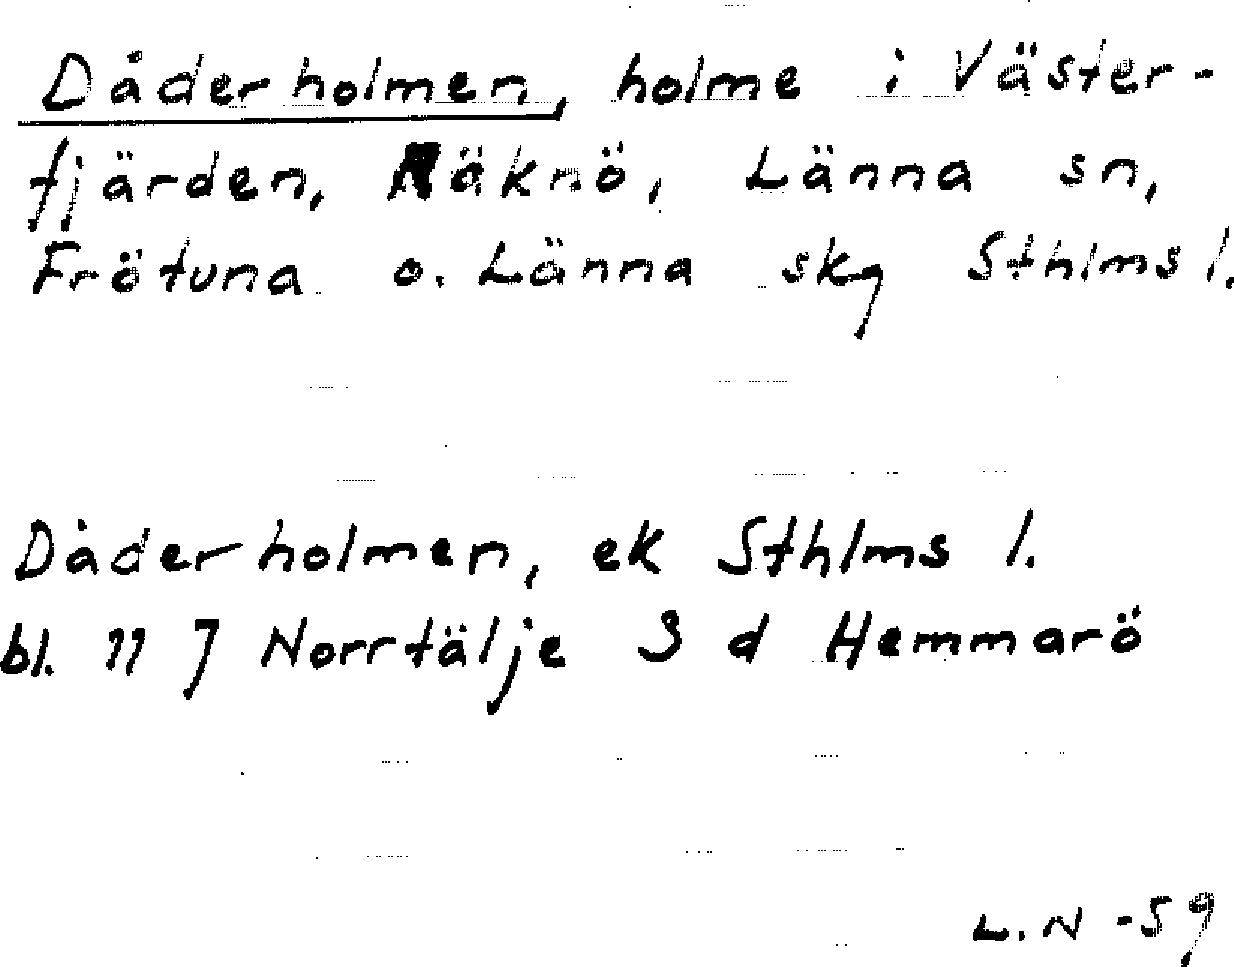 Dåderholmen, holme i Väster-
fjärden, Räknö, Länna sn,
Frötuna o. Länna skg Sthlms l.
Dåderholmen, ek Sthlms l.
bl. 11 J Norrtälje S d Hemmarö
L. N -59